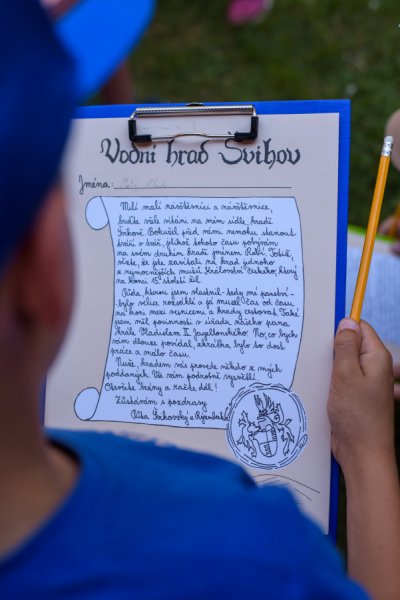 Vodní hrad Švihov
Jména:
Milí malí návštěvníci a návštěvnice,
buďte vřele vítáni na mém sídle, hradě
Švihově. Bohužel před vámi nemohu stanout
tváří v tvář, jelikož tohoto času pobývám
na svém druhém hradě jménem Rabí. Tobiž,
vězte, že jste zavítali na hrad jednoho
z nejmocnějších mužů Království českého, který
na konci 15. století žil.
Půda, kterou jsem vlastnil - tedy mé panství -
bylo velice rozsáhlé a já musel čas od času
na koni mezi vesnicemi a hrady cestovat. Také
jsem měl povinnosti v úřadu našeho pana
krále Vladislava II. Jagellonského. No, co bych
vám dlouze povídal, zkrátka bylo to dost
práce a málo času.
Nuže, hradem vás provede někdo z mých
poddaných. Vše vám podrobně vysvětlí!
Otevřete brány a račte dál!
Zůstávám s pozdravy
Půta Švihovský z Rýzmberka